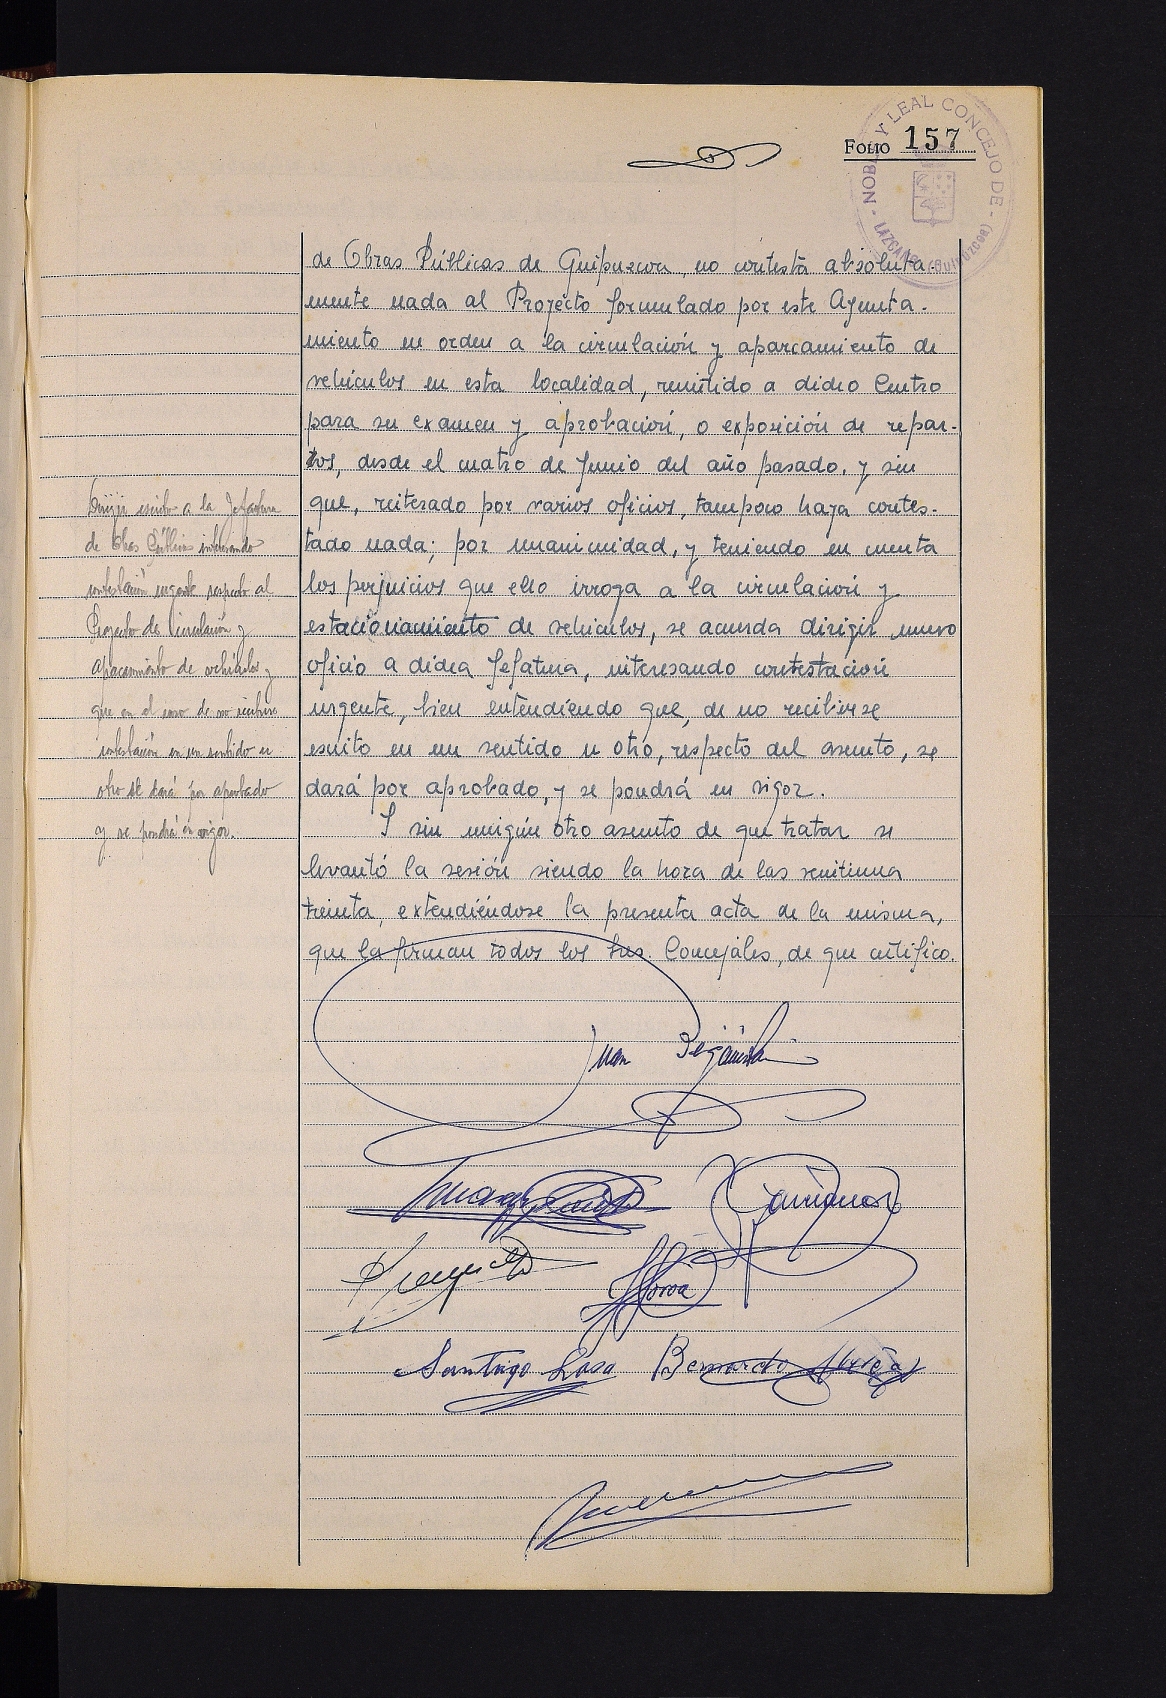 FOLIO 157
NOBLE Y LEAL CONCEJO DE - LAZCANO (Guipúzcoa) -
de Obras Públicas de Guipuzcoa, no contesta absoluta-
mente nada al Proyecto formulado por este Ayunta-
miento en orden a la circulación y aparcamiento de
vehiculos en esta localidad, remitido a dicho Centro
para su examen y aprobación, o exposición de repar-
tos, desde el cuatro de Junio del año pasado, y sin
que, reiterado por varios oficios, tampoco haya contes-
tado nada; por unanimidad, y teniendo en cuenta
los perjuicios que ello irroga a la circulación y
estacionamiento de vehiculos, se acuerda dirigir nuevo
oficio a dicha Jefatura, interesando contestación
urgente, bien entendiendo que, de no recibirse
escrito en un sentido u otro, respecto del asunto, se
dará por aprobado, y se pondrá en vigor.
Y sin ningún otro asunto de que tratar se
levantó la sesión siendo la hora de las veintiuna
treinta, extendiéndose la presenta acta de la misma,
que la firman todos los Sres. Concejales, de que certifico.
Dirigir escrito a la Jefatura
de Obras Públicas interesando
contestación urgente respecto al
Proyecto de Circulación y
aparcamiento de vehiculos y
que en el caso de no recibirse
contestación en un sentido u
otro se dará por aprobado
y se pondrá en vigor.
Juan
Santiago Lasa Bernardo